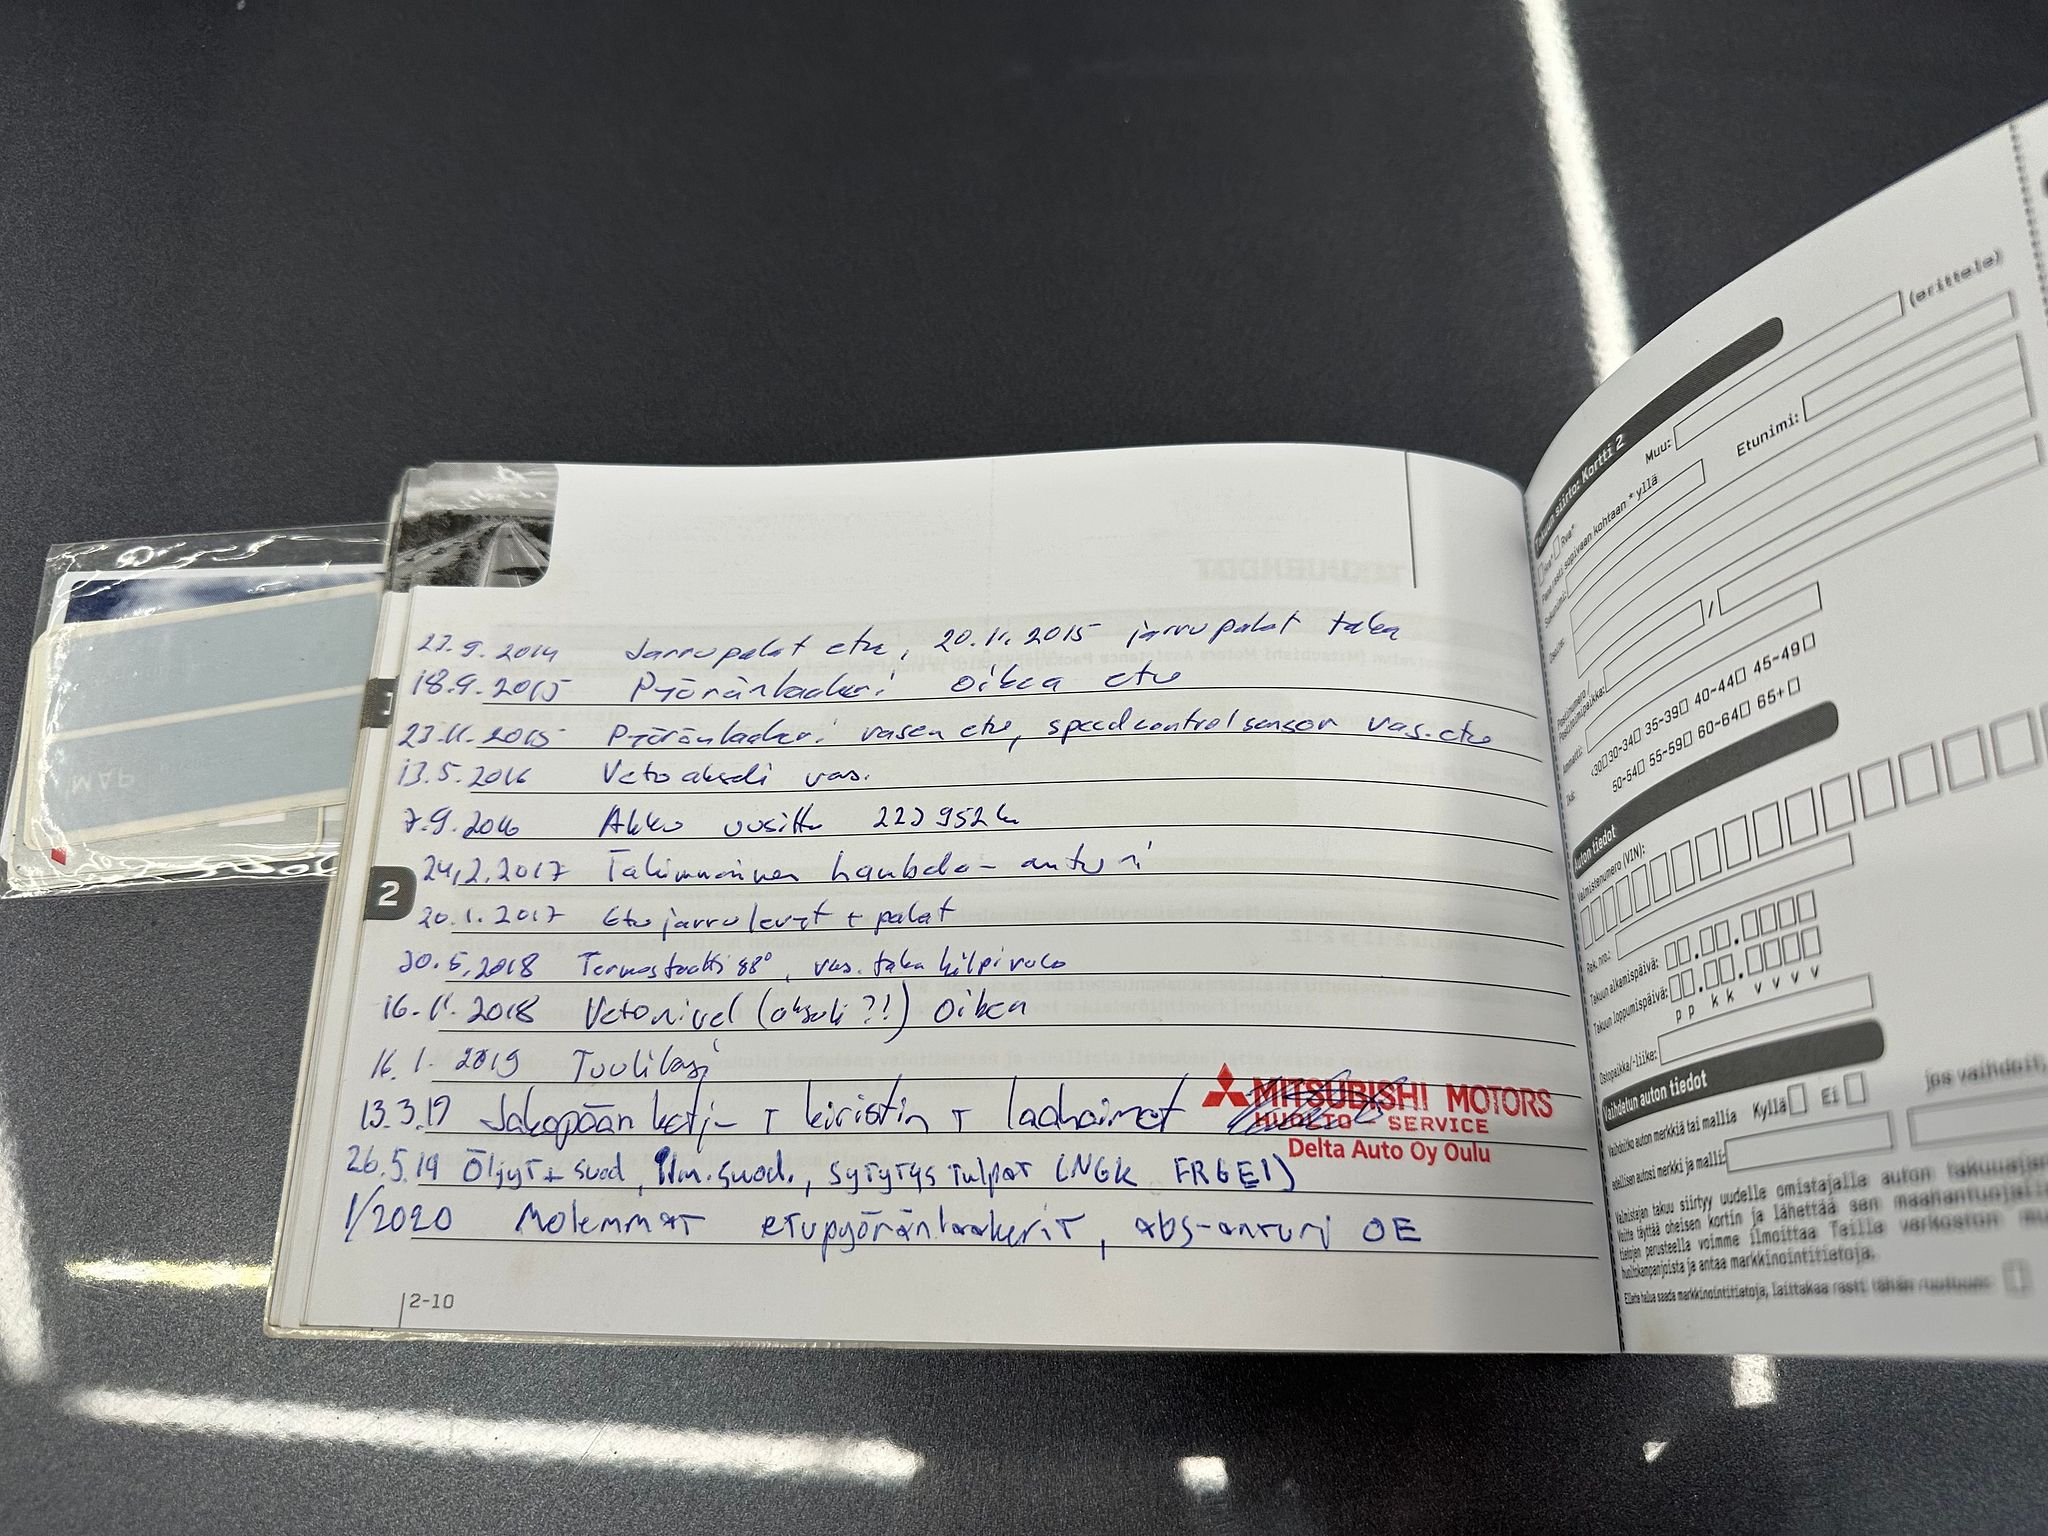 23.9.2014 Jarrupalat etu, 20.11.2015 jarrupalat taka
18.9.2015 Pyöränlaakeri oikea etu
23.11.2015 Pyöränlaakeri vasen etu, speedcontrolsensor vas.etu
13.5.2016 Vetoakseli vas.
7.9.2016 Akku uusittu 223952km
24.2.2017 Takimmainen lambda-anturi
20.1.2017 Etujarrulevyt + palat
30.5.2018 Termostaatti 88°, vas. taka kilpivalo
16.11.2018 Vetonivel (akseli?!) Oikea
16.1.2019 Tuulilasi
13.3.19 Jakopään ketju + kiristin + laahaimet
MITSUBISHI MOTORS
HUOLTO SERVICE
Delta Auto Oy Oulu
26.5.19 Öljyt + suod, ilm.suod., sytytystulpat (NGK FR6EI)
1/2020 Molemmat etupyöränlaakerit, abs-anturi OE
2-10
1
2
MAP
Takuun siirto: Kortti 2
Muu: (erittele)
Rva*
Pane rasti sopivaan kohtaan * yllä
Sukunimi: Etunimi:
Osoite:
/
Postinumero/
Postitoimipaikka:
Ammatti:
Ikä: <30 30-34 35-39 40-44 45-49
50-54 55-59 60-64 65+
Auton tiedot
Valmistenumero (VIN):
Rek. nro.:
Takuun alkamispäivä:
Takuun loppumispäivä:
p p k k v v v v
Ostopaikka/-liike:
Vaihdetun auton tiedot
Vaihdoitko auton merkkiä tai mallia Kyllä Ei jos vaihdoit,
edellisen autosi merkki ja malli:
Valmistajan takuu siirtyy uudelle omistajalle auton takuuajan
Voitte täyttää oheisen kortin ja lähettää sen maahantuojalle
tietojen perusteella voimme ilmoittaa Teille verkoston
huoltokampanjoista ja antaa markkinointitietoja.
Ellette halua saada markkinointitietoja, laittakaa rasti tähän ruutuun: